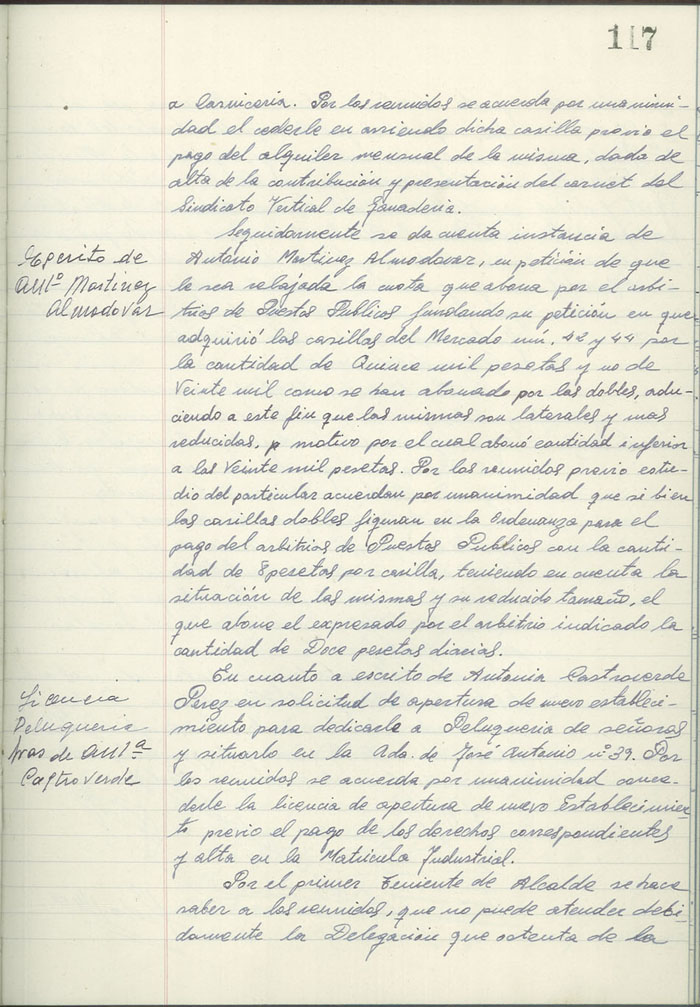 117
a Carniceria. Por los reunidos se acuerda por unanimi-
dad el cederle en arriendo dicha casilla previo el
pago del alquiler mensual de la misma, dada de
alta de la contribución y presentación del carnet del
Sindicato Vertical de Ganaderia.
Escrito de
Antº Martinez
Almodovar
Seguidamente se da cuenta instancia de
Antonio Martinez Almodovar, en petición de que
le sea rebajada la cuota que abona por el arbi-
trios de Puestos Publicos fundando su petición en que
adquirió las casillas del Mercado núm. 42 y 44 por
la cantidad de Quince mil pesetas y no de
Veinte mil como se han abonado por las dobles, adu-
ciendo a este fin que las mismas son laterales y mas
reducidas, motivo por el cual abonó cantidad inferior
a las Veinte mil pesetas. Por los reunidos previo estu-
dio del particular acuerdan por unanimidad que si bien
las casillas dobles figuran en la Ordenanza para el
pago del arbitrios de Puestos Publicos con la canti-
dad de 8 pesetas por casilla, teniendo en cuenta la
situación de las mismas y su reducido tamaño, el
que abone el expresado por el arbitrio indicado la
cantidad de Doce pesetas diarias.
Licencia
Peluqueria
de Antª
Castroverde
En cuanto a escrito de Antonia Castroverde
Perez en solicitud de apertura de nuevo estableci-
miento para dedicarlo a Peluqueria de señoras
y situarlo en la Ada. de José Antonio nº 39. Por
los reunidos se acuerda por unanimidad conce-
derle la licencia de apertura de nuevo Establecimien-
to previo el pago de los derechos correspondientes
y alta en la Matricula Industrial.
Por el primer Teniente de Alcalde se hace
saber a los reunidos, que no puede atender debi-
damente la Delegación que ostenta de la